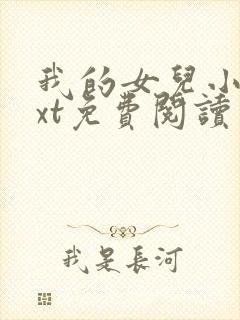 我的女兒小
xt免費閱讀
我是長河